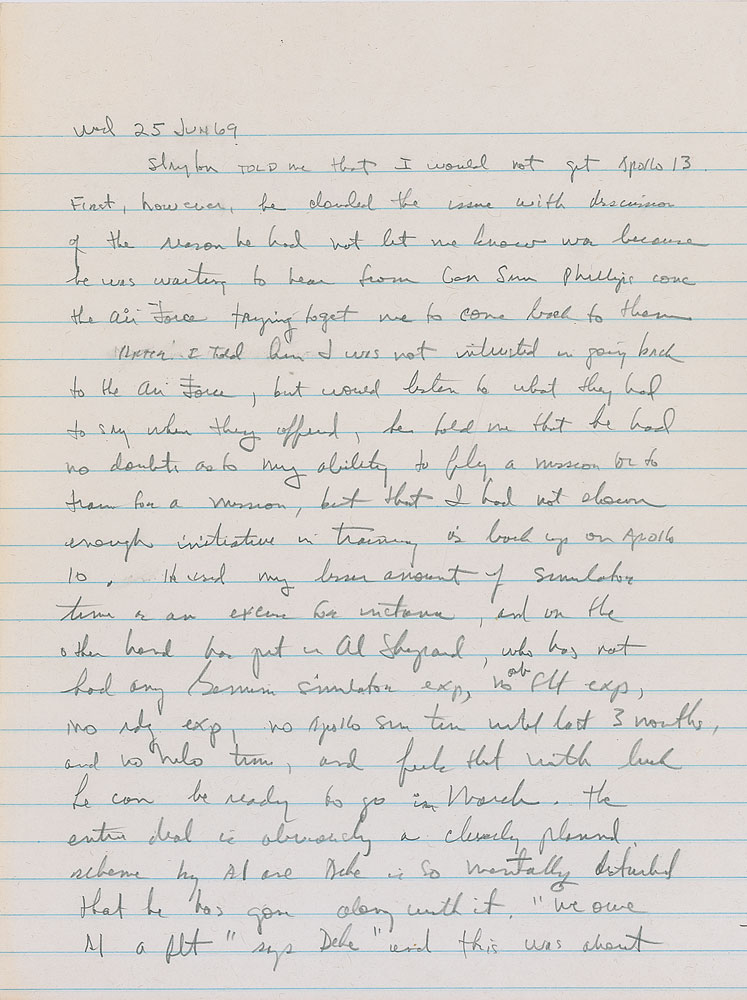 Wed 25 JUN 69
Slayton TOLD me that I would not get Apollo 13.
First, however, he clouded the issue with discussion
of the reason he had not let me know was because
he was waiting to hear from Gen Sam Phillips conc
the Air Force trying to get me to come back to them
After I told him I was not intrusted in going back
to the Air Force, but would listen to what they had
to say when they offered, he told me that he had
no doubts as to my ability to fly a mission or to
train for a mission, but that I had not shown
enough initiative in training as back up on Apollo
10. He used my lesser amount of simulator
time as an excuse for instance, and on the
other hand has put in Al Shepard, who has not
had any Gemini simulator exp, no orb flt exp,
no rdz exp, no Apollo sim time until last 3 months,
and no helo time, and feels that with luck
he can be ready to go in March. The
entire deal is obviously a cleverly planned
scheme by Al and Deke is so mentally disturbed
that he has gone along with it. "We owe
Al a flt" says Deke "and this was about